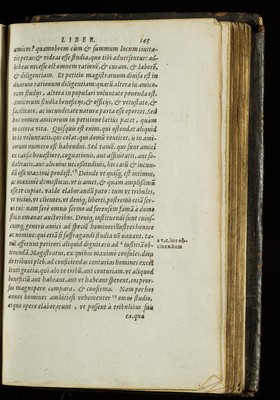 LIBER. 145
amicos? quamobrem cùm & summum locum ciuita-
tis petas: & videas esse studia, quæ tibi aduersentur: ad-
hibeas necesse est omnem rationē, & curam, & laborē,
& diligentiam. Et petitio magistratuum diuisa est in
duarum rationum diligentiam: quarū altera in amico-
rum studijs, altera in populari voluntate ponenda est.
Amicorum studia beneficijs, & officijs, & vetustate, &
facilitate, ac iucunditate naturæ parta esse oportet. Sed
hoc nomen amicorum in petitione latius patet, quàm
in cetera vita. Quisquis est enim, qui ostendat aliquid
in te voluntatis, qui colat, qui domū ventitet, is in ami-
corum numero est habendus. Sed tamē, qui sunt amici
ex causa iustiore, cognationis, aut affinitatis, aut so-
dalitatis, aut alicuius necessitudinis, his carū & iucun-
dū esse maximè prodest. Deinde vt quisq; est intimus,
ac maximè domesticus, vt is amet, & quàm amplissimū
esse te cupiat, valde elaborandū: tum vt tribules,
vt vicini, vt clientes, vt denique liberti, postremò etiā ser-
ui tui: nam ferè omnis sermo ad forensem famā à dome-
sticis emanat auctoribus. Denique instituendi sunt cuius-
cumq; generis amici ad speciē homines illustres honore
ac nomine: qui etiā si suffragandi studia nō nauant, ta-
mē afferunt petitori aliquid dignitatis ad ius obti-
nendū. Magistratus, ex quibus maximè consules, deinde
tribuni pleb. ad conficiendas centurias homines excel-
lenti gratia, qui abs te tribū, aut centuriam, vt aliquod
beneficiū aut habeant, aut vt habeant sperent, eos pror-
sus magnopere compara, & confirma. Nam per hos
annos homines ambitiosi vehementer omni studio,
atque opere elaborarunt, vt possent à tribulibus suis
ea, quæ